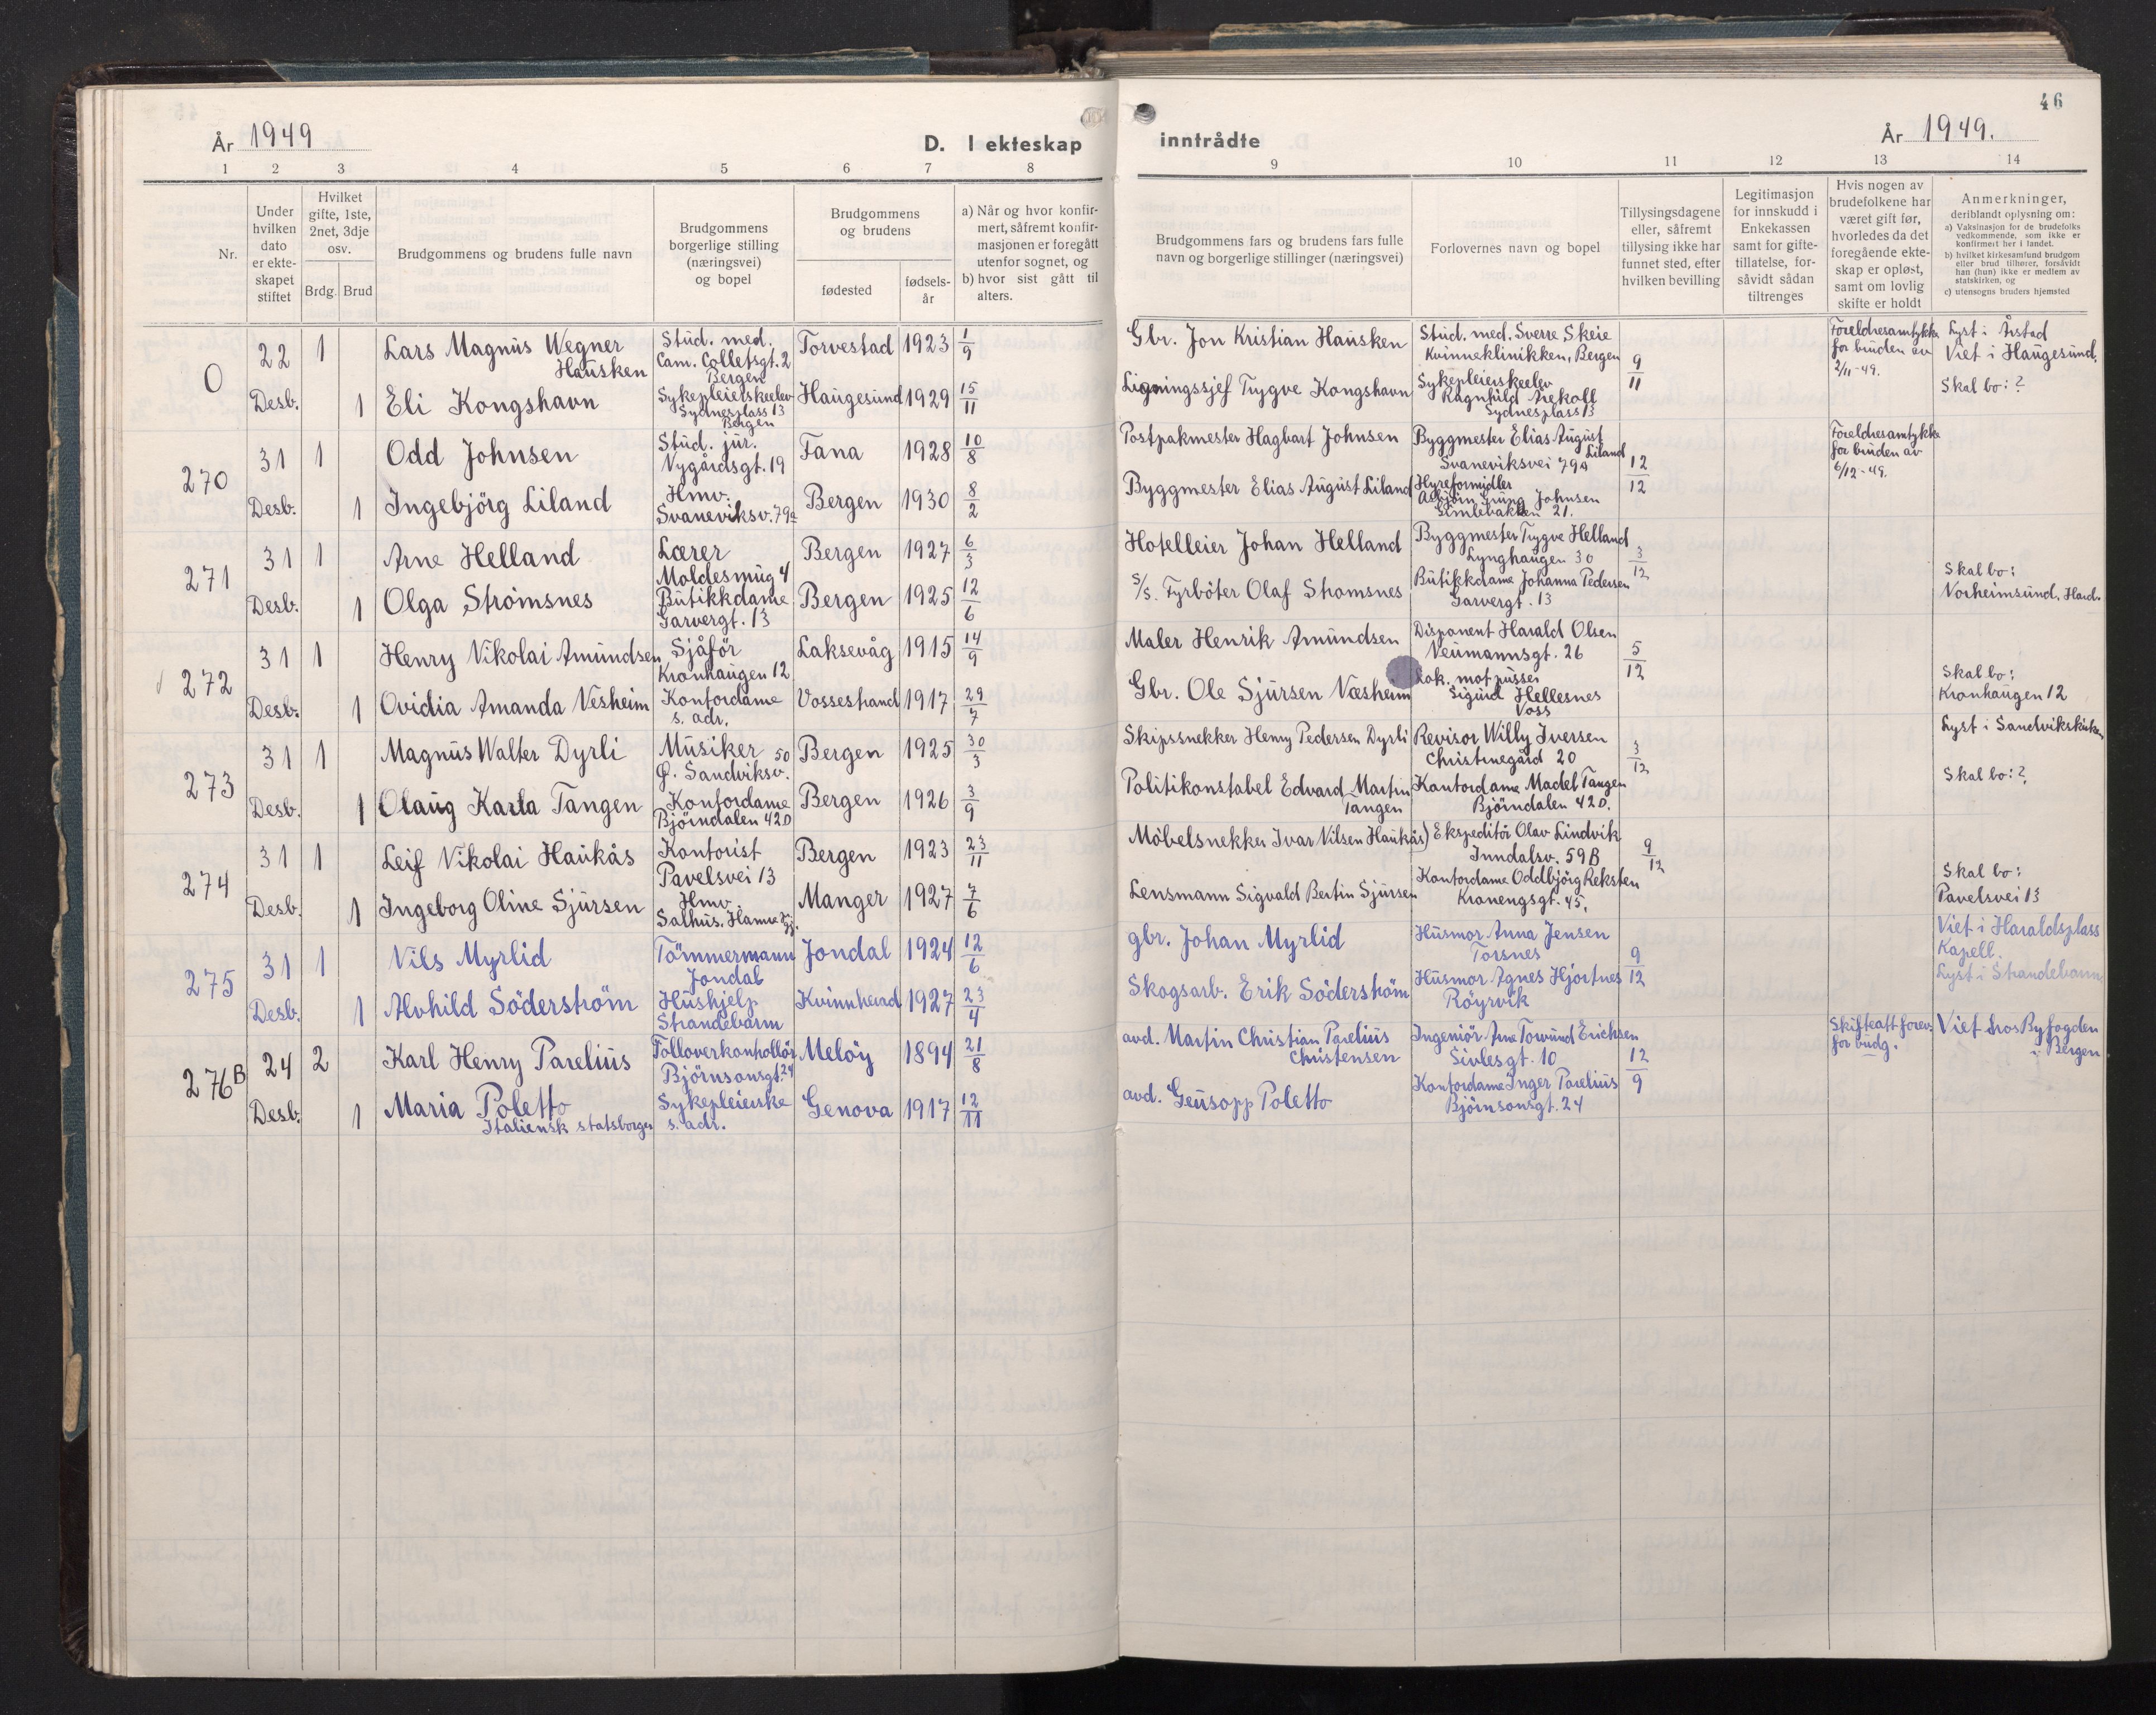 46
År 1949
D. I ekteskap
inntrådte
År 1949.
1 2 3 4 5 6 7 8
9 10 11 12 13 14
Nr.
Under
hvilken
dato
er ekte-
skapet
stiftet
Hvilket
gifte, 1ste,
2net, 3dje
osv.
Brdg. Brud
Brudgommens og brudens fulle navn
Brudgommens
borgerlige stilling
(næringsvei)
og bopel
Brudgommens
og brudens
fødested
fødsels-
år
a) Når og hvor konfir-
mert, såfremt konfir-
masjonen er foregått
utenfor sognet, og
b) hvor sist gått til
alters.
Brudgommens fars og brudens fars fulle
navn og borgerlige stillinger (næringsvei)
Forlovernes navn og bopel
Tillysingsdagene
eller, såfremt
tillysing ikke har
funnet sted, efter
hvilken bevilling
Legitimasjon
for innskudd i
Enkekassen
samt for gifte-
tillatelse, for-
såvidt sådan
tiltrenges
Hvis nogen av
brudefolkene har
været gift før,
hvorledes da det
foregående ekte-
skap er opløst,
samt om lovlig
skifte er holdt
Anmerkninger,
deriblandt oplysning om:
a) Vaksinasjon for de brudefolks
vedkommende, som ikke er
konfirmert her i landet.
b) hvilket kirkesamfund brudgom
eller brud tilhører, forsåvidt
han (hun) ikke er medlem av
statskirken, og
c) utensogns bruders hjemsted
0
22 1 Lars Magnus Wegner
Hausken
Stud. med.
Cam. Colletsgt. 2
Bergen
Torvestad 1923 1/9
Gbr. Jon Kristian Hausken
Stud. med. Sverre Skeie
Kvinneklinikken, Bergen
9/11
Foreldresamtykke
for bruden av
2/11-49.
Lyst i Årstad
Viet i Haugesund.
Skal bo: ?
Desb. 1 Eli Kongshavn
Sykepleierskeelev
Sydnesplass 13
Bergen
Haugesund 1929 15/11
Ligningssjef Trygve Kongshavn
Sykepleierskeelev
Ragnhild Arekoll
Sydnesplass 13
270
31 1 Odd Johnsen
Stud. jur.
Nygårdsgt. 19
Fana 1928 10/8
Postpakmester Hagbart Johnsen
Byggmester Elias August
Liland
Svaneviksvei 79a
12/12
Foreldresamtykke
for bruden av
6/12-49.
Desb. 1 Ingebjörg Liland
Hmv.
Svaneviksv. 79a
Bergen 1930 8/2
Byggmester Elias August Liland
Hyreformidler
Asbjörn Grung Johnsen
Gimlebakken 21.
271
31 1 Arne Helland
Lærer
Moldesmug 4
Bergen 1927 6/3
Hotelleier Johan Helland
Byggmester Trygve Helland
Lynghaugen 30
3/12
Desb. 1 Olga Strömsnes
Butikkdame
Garvergt. 13
Bergen 1925 12/6
S/S. Fyrböter Olaf Stromsnes
Butikkdame Johanna Pedersen
Garvergt. 13
Skal bo:
Norheimsund, Hard.
272
31 1 Henry Nikolai Amundsen
Sjåför
Kronhaugen 12
Laksevåg 1915 14/9
Maler Henrik Amundsen
Disponent Harald Olsen
Neumannsgt. 26
5/12
Desb. 1 Ovidia Amanda Nesheim
Kontordame
s. adr.
Vossestrand 1917 29/7
Gbr. Ole Sjursen Næsheim
Lok. motpusser
Sigurd Hellesnes
Voss
Skal bo:
Kronhaugen 12
273
31 1 Magnus Walter Dyrli
Musiker
50
Ø. Sandviksv.
Bergen 1925 30/3
Skipssnekker Henry Pedersen Dyrli
Revisor Willy Iversen
Christinegård 20
3/12
Lyst i Sandvikskirken
Desb. 1 Olaug Karla Tangen
Kontordame
Björndalen 420
Bergen 1926 3/9
Politikonstabel Edvard Martin
Tangen
Kontordame Madel Tangen
Björndalen 420.
Skal bo: ?
274
31 1 Leif Nikolai Haukås
Kontorist
Pavelsvei 13
Bergen 1923 23/11
Möbelsnekker Ivar Nilsen Haukås)
Ekspeditör Olav Lindvik
Inndalsv. 59B
9/12
Desb. 1 Ingeborg Oline Sjursen
Hmv.
Salhus. Hamre
Manger 1927 7/6
Lensmann Sigvald Bertin Sjursen
Kontordame Oddbjörg Reksten
Kronengsgt. 45.
Skal bo:
Pavelsvei 13
275
31 1 Nils Myrlid
Tömmermann
Jondal
Jondal 1924 12/6
gbr. Johan Myrlid
Husmor Anna Jensen
Torsnes
9/12
Viet i Haraldsplass
Kapell.
Lyst i Strandebarm
Desb. 1 Alvhild Söderström
Hushjelp
Strandebarm
Kvinnherad 1927 23/4
Skogsarb. Erik Söderström
Husmor Agnes Hjortnes
Röyrvik
276B
24 2 Karl Henry Parelius
Tolloverkontrollör
Björnsonsgt. 24
Melöy 1894 21/8
avd. Martin Christian Parelius
Christensen
Ingeniör Arne Torvund Erichsen
Sivlesgt. 10
12/9
Skifteatt. forev.
for brudg.
Viet hos Byfogden
i Bergen
Desb. 1 Maria Poletto
Italiensk statsborger
Sykepleierske
s. adr.
Genova 1917 12/11
avd. Geusopp Poletto
Kontordame Inger Parelius
Björnsonsgt. 24